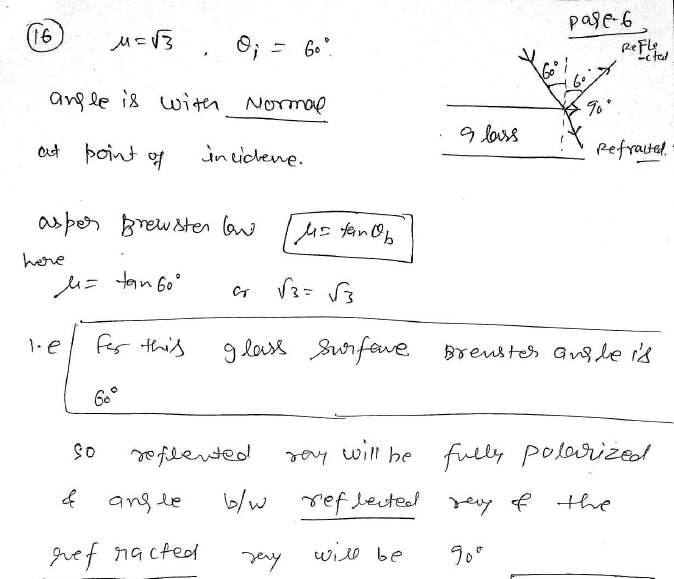 page-6
16 μ=√3 , θi = 60°.
Reflected
60° 60°
angle is with Normal
90°
at point of incidence.
glass
Refracted.
as per Brewster law μ= tanθb
here
μ= tan60° or √3 = √3
i.e for this glass surface Brewster angle is
60°
so reflected ray will be fully polarized
& angle b/w reflected ray & the
refracted ray will be 90°